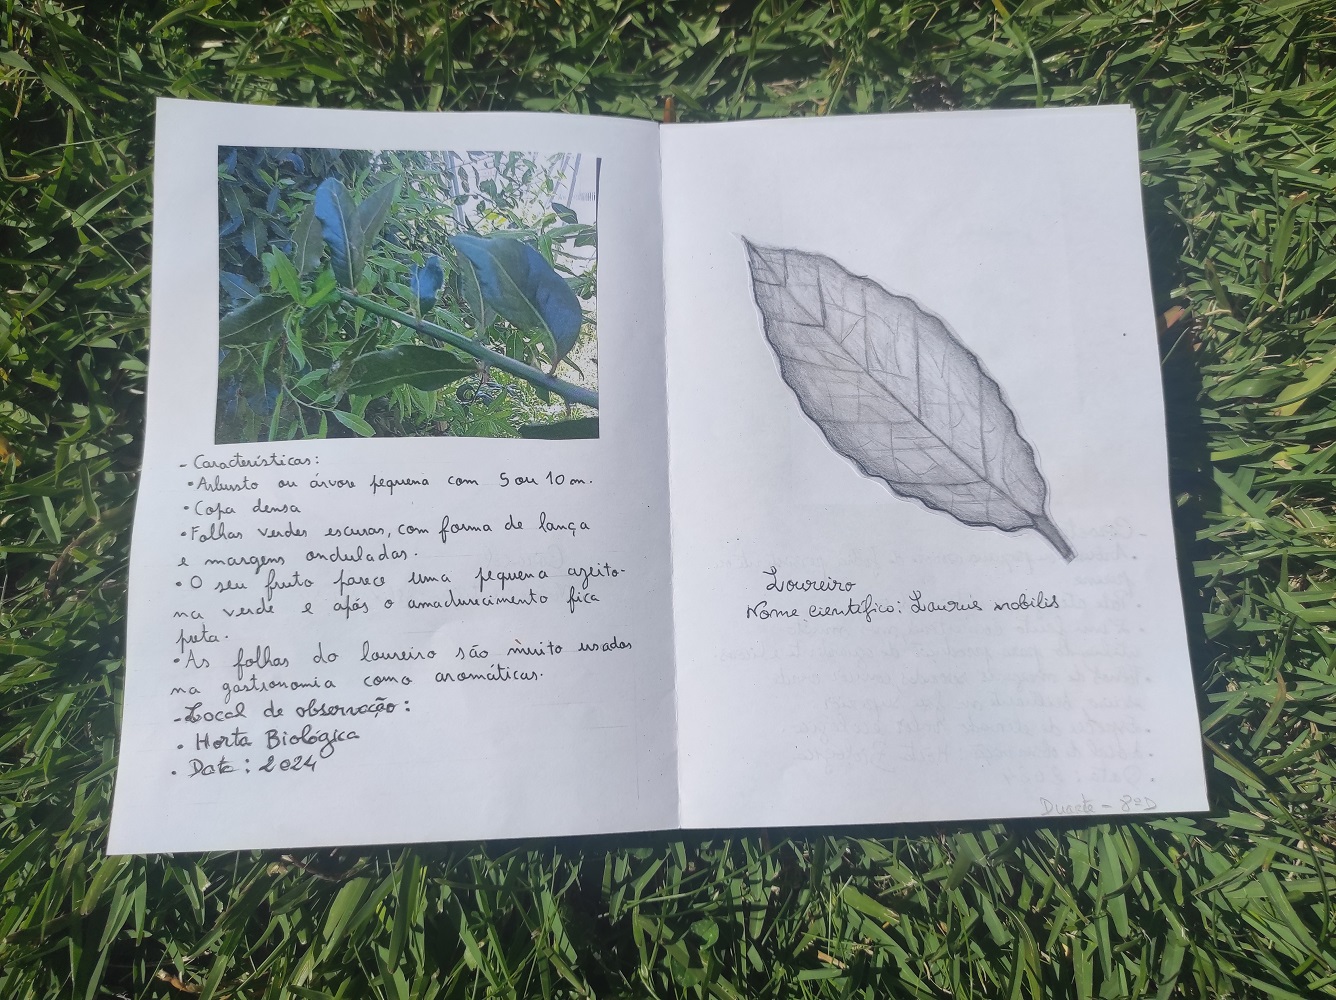 - Características:
• Arbusto ou árvore pequena com 5 ou 10 m.
• Copa densa
• Folhas verdes escuras, com forma de lança
e margens onduladas.
• O seu fruto parece uma pequena azeito-
na verde e após o amadurecimento fica
preta.
• As folhas do loureiro são muito usadas
na gastronomia como aromáticas.
- Local de observação:
• Horta Biológica
• Data: 2024
Loureiro
Nome científico: Laurus nobilis
Duarte - 8ºD